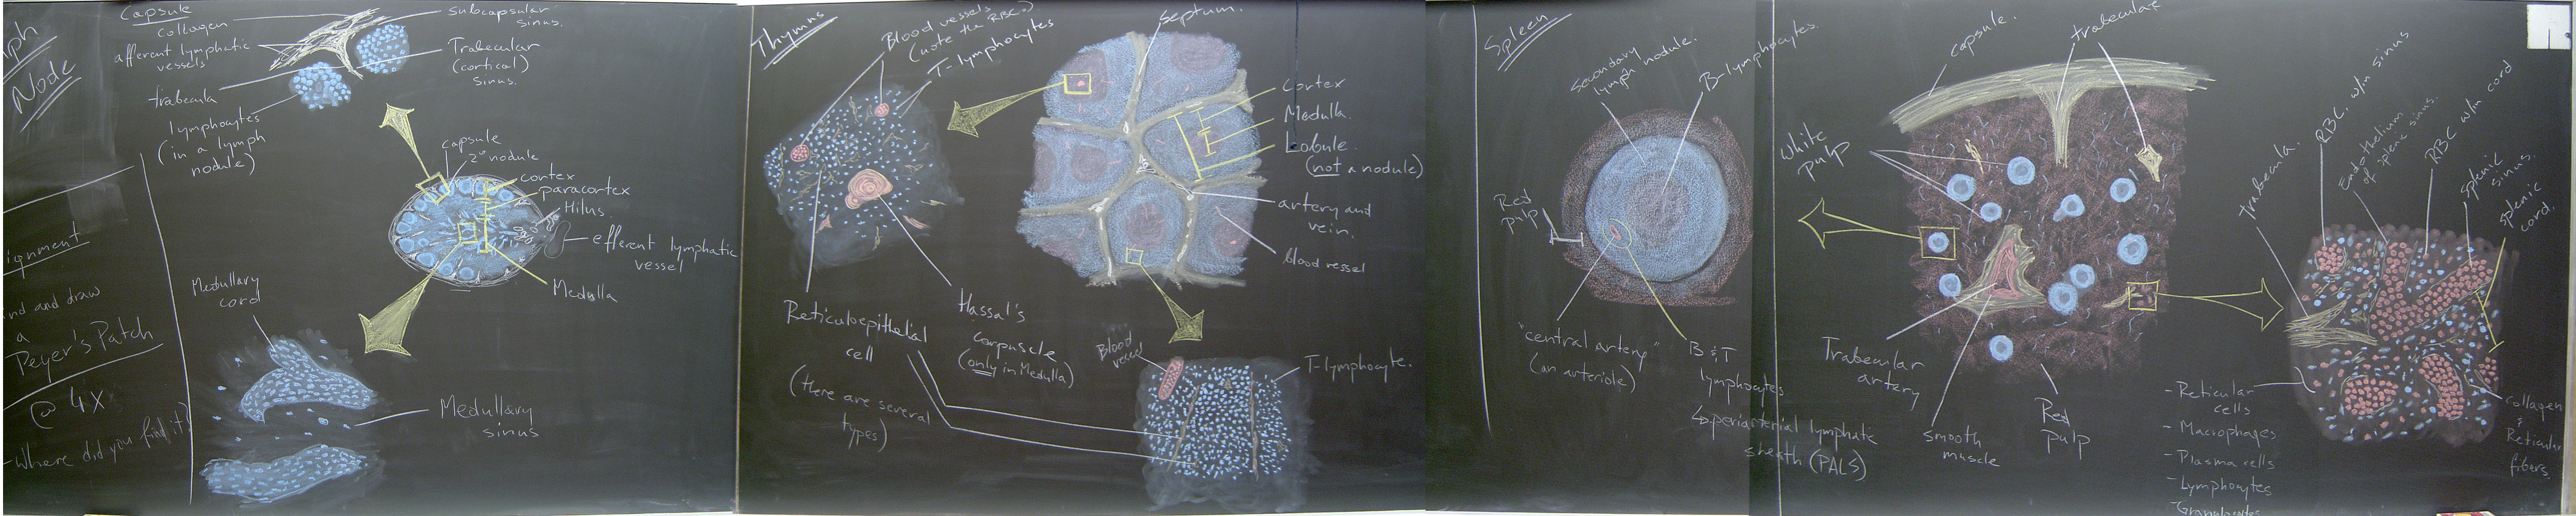 Node
ignment
nd and draw
a
Peyer's Patch
@ 4X
-Where did you find it?
Capsule
collagen
afferent lymphatic
vessels
subcapsular
sinus.
Trabecular
(cortical)
sinus.
trabecula
lymphocytes
(in a lymph
nodule)
capsule
2° nodule
cortex
paracortex
Hilus.
efferent lymphatic
vessel
Medulla
Medullary
cord
Medullary
sinus
Thymus
Blood vessels
(note the RBC.)
T-lymphocytes
Septum.
Cortex
Medulla.
Lobule.
(not a nodule)
artery and
vein.
blood vessel
Reticuloepithelial
cell
(there are several
types)
Hassal's
corpuscle
(only in Medulla)
Blood
vessel
T-lymphocyte.
Spleen
Secondary
lymph nodule.
B-lymphocytes.
Red
pulp
"central artery"
(an arteriole)
B & T
lymphocytes
↳ periarterial lymphatic
sheath (PALS)
capsule.
trabeculae
White
pulp
Trabecular
artery
smooth
muscle
Red
pulp
Trabecula.
RBC. w/in sinus
Endothelium
of splenic sinus.
RBC w/in cord
Splenic
sinus.
Splenic
cord.
- Reticular
cells
- Macrophages
- Plasma cells
- Lymphocytes
- Granulocytes
Collagen
&
Reticular
fibers